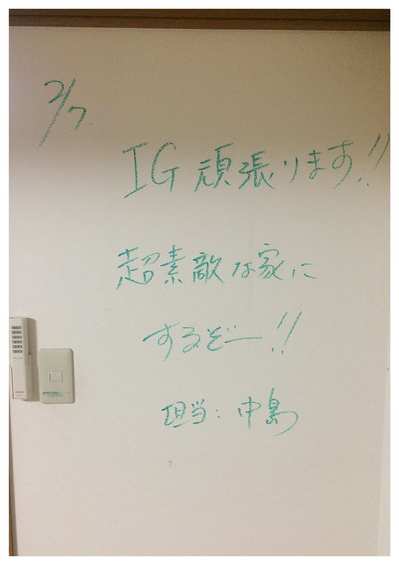 2/7
IG頑張ります!!
超素敵な家に
するぞー!!
担当:中島